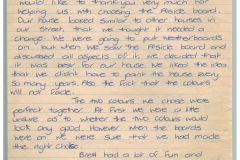 would like to thankyou very much for
helping us with choosing the Alside board.
Our house looked similar to other houses in
our street, that we thought it needed a
change. We were going to put Weatherboards
on but when we saw the Alside board and
discussed all aspects of it we decided that
it was best for our house. We liked the idea
that we didn't have to paint the house every
so many years. Also the fact that the colours
will not fade.
The two colours we chose were
perfect together. At first we were a little
unsure as to whether the two colours would
look any good. However when the boards
were on we were sure that we had made
the right choice.
Brett had a bit of fun and